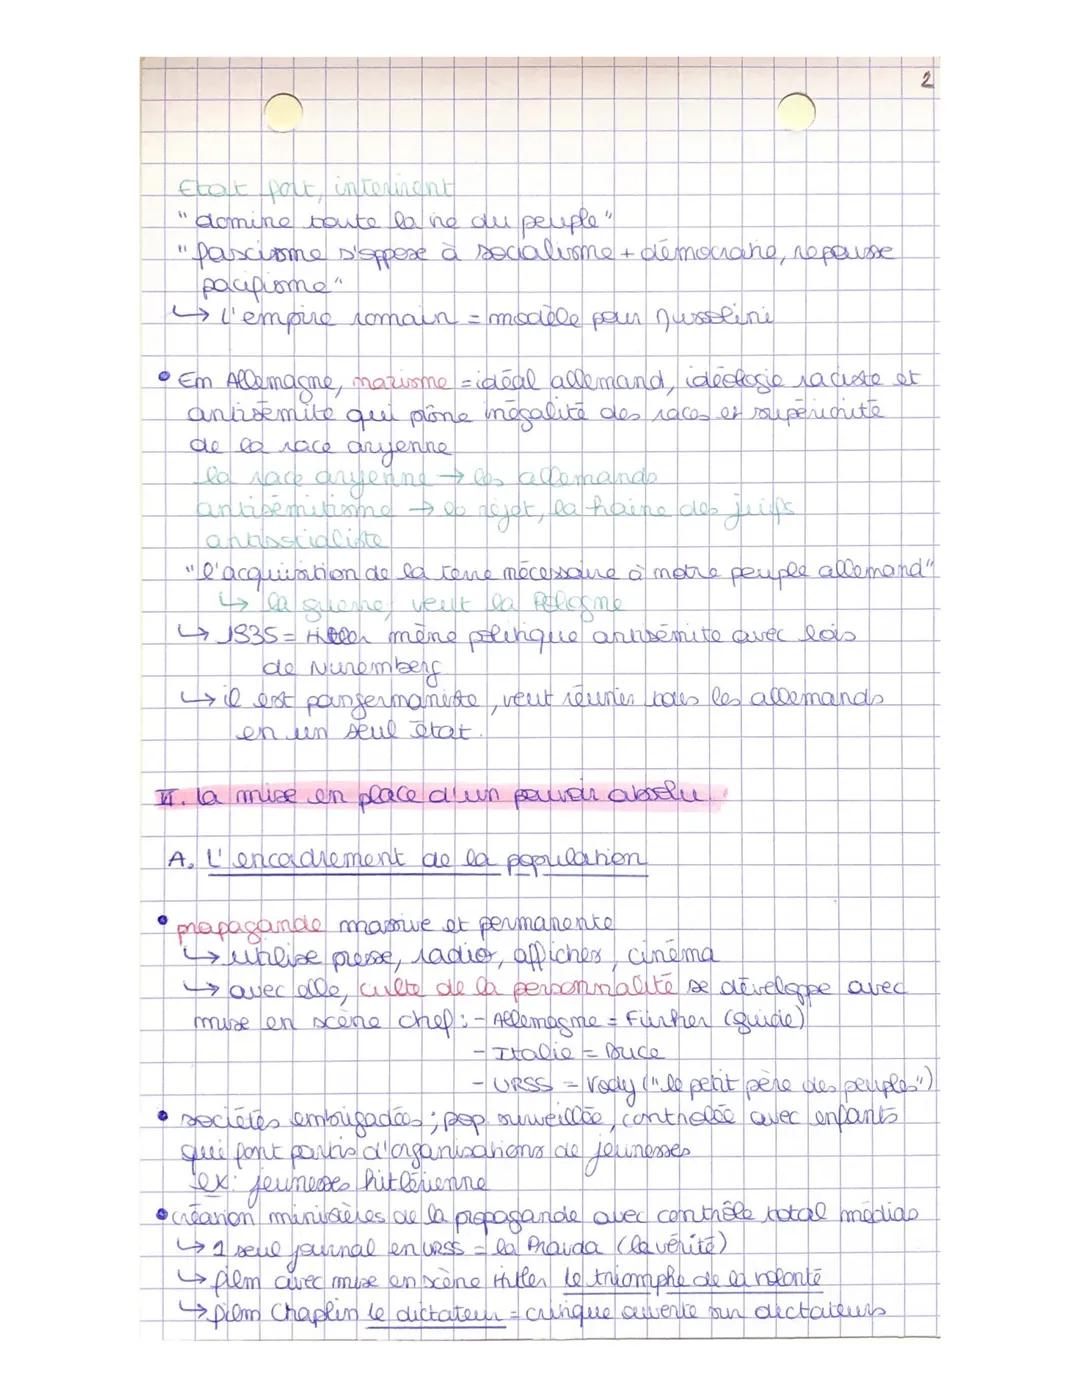 2
Etat fort, intervient
"domine toute la vie du peuple"
"fascisme s'oppose à socialisme + démocratie, repousse
pacifisme"
↳ l'empire romain = modèle pour Mussolini
• En Allemagne, nazisme = idéal allemand, idéologie raciste et
antisémite qui prône inégalité des races et supériorité
de la race aryenne
la race aryenne → les allemands
antisémitisme → le rejet, la haine des juifs
antisocialiste
"l'acquisition de la terre nécessaire à notre peuple allemand"
↳ la guerre, veut la Pologne
↳ 1935 = Hitler mène politique antisémite avec lois
de Nuremberg
↳ il est pangermaniste, veut réunir tous les allemands
en un seul état.
II. la mise en place d'un pouvoir absolu.
A. L'encadrement de la population
• propagande massive et permanente
↳ utilise presse, radios, affiches, cinéma
↳ avec elle, culte de la personnalité se développe avec
mise en scène chef : - Allemagne = Fürher (guide)
- Italie = Duce
- URSS = Vody ("le petit père des peuples")
• sociétés embrigadées ; pop surveillée, contrôlée avec enfants
qui font partis d'organisations de jeunesses
ex: jeunesses hitlérienne
• création ministères de la propagande avec contrôle total médias
↳ 1 seul journal en URSS = la Pravda (la vérité)
↳ film avec mise en scène Hitler le triomphe de la volonté
↳ film Chaplin le dictateur = critique ouverte sur dictateurs